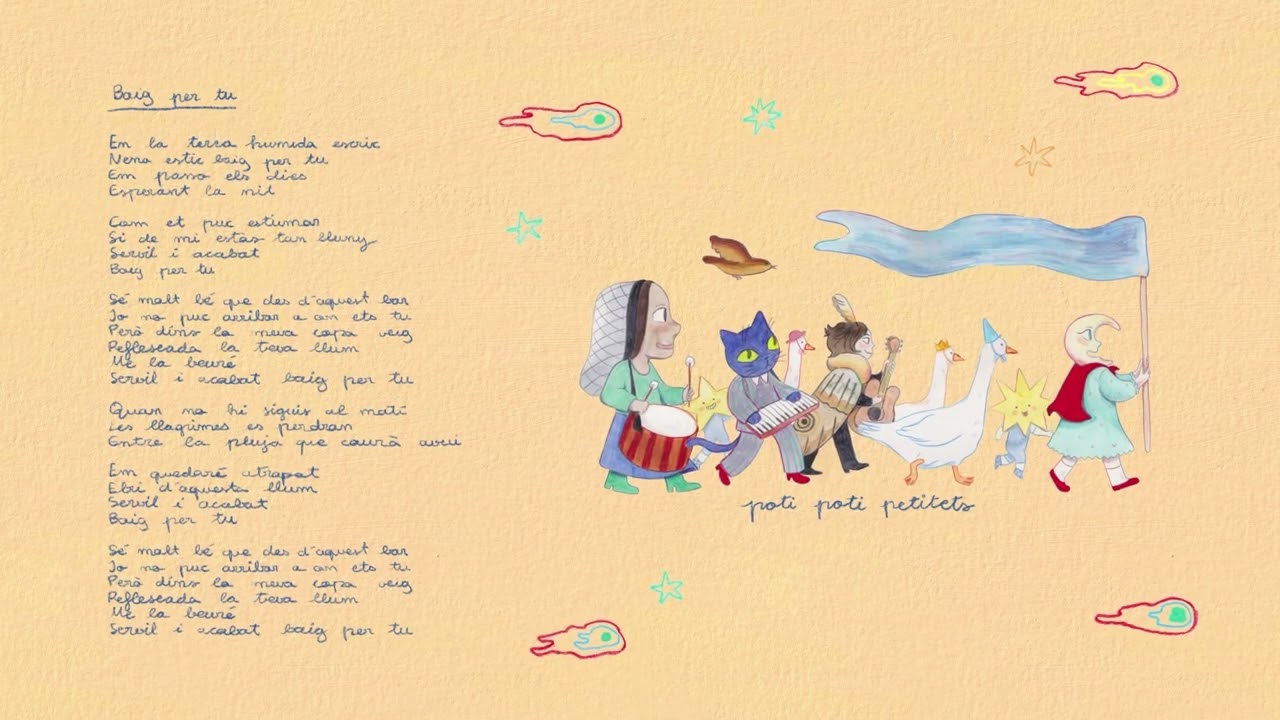 Boig per tu
En la terra humida escric
Nena estic boig per tu
Em passo els dies
Esperant la nit
Com et puc estimar
Si de mi estàs tan lluny
Servil i acabat
Boig per tu
Sé molt bé que des d'aquest bar
Jo no puc arribar a on ets tu
Però dins la meva copa veig
Reflexada la teva llum
Me la beuré
Servil i acabat boig per tu
Quan no hi siguis al matí
Les llàgrimes es perdran
Entre la pluja que caurà avui
Em quedaré atrapat
Ebri d'aquesta llum
Servil i acabat
Boig per tu
Sé molt bé que des d'aquest bar
Jo no puc arribar a on ets tu
Però dins la meva copa veig
Reflexada la teva llum
Me la beuré
Servil i acabat boig per tu
poti poti petitets